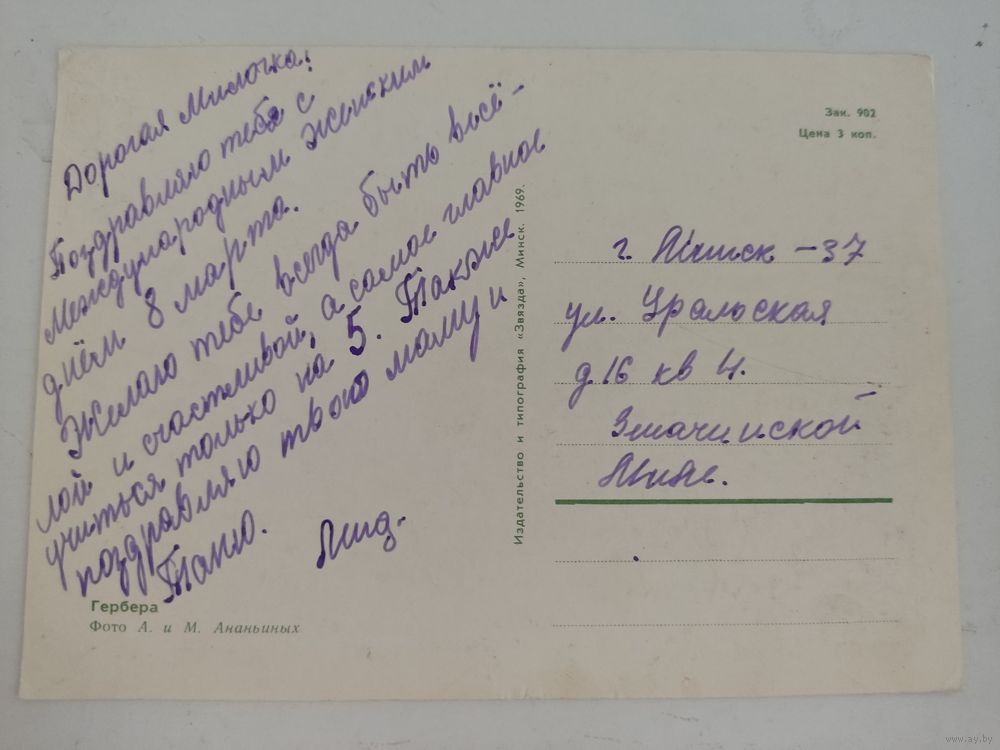 Дорогая Милочка!
Поздравляю тебя с
Международным Женским
днём 8 марта.
Желаю тебе всегда быть весё-
лой и счастливой, а самое главное
учиться только на 5. Также
поздравляю твою маму и
Таню. Лид.
Гербера
Фото А. и М. Ананьиных
Издательство и типография «Звязда», Минск. 1969.
Зак. 902
Цена 3 коп.
г. Минск - 37
ул. Уральская
д 16 кв 4.